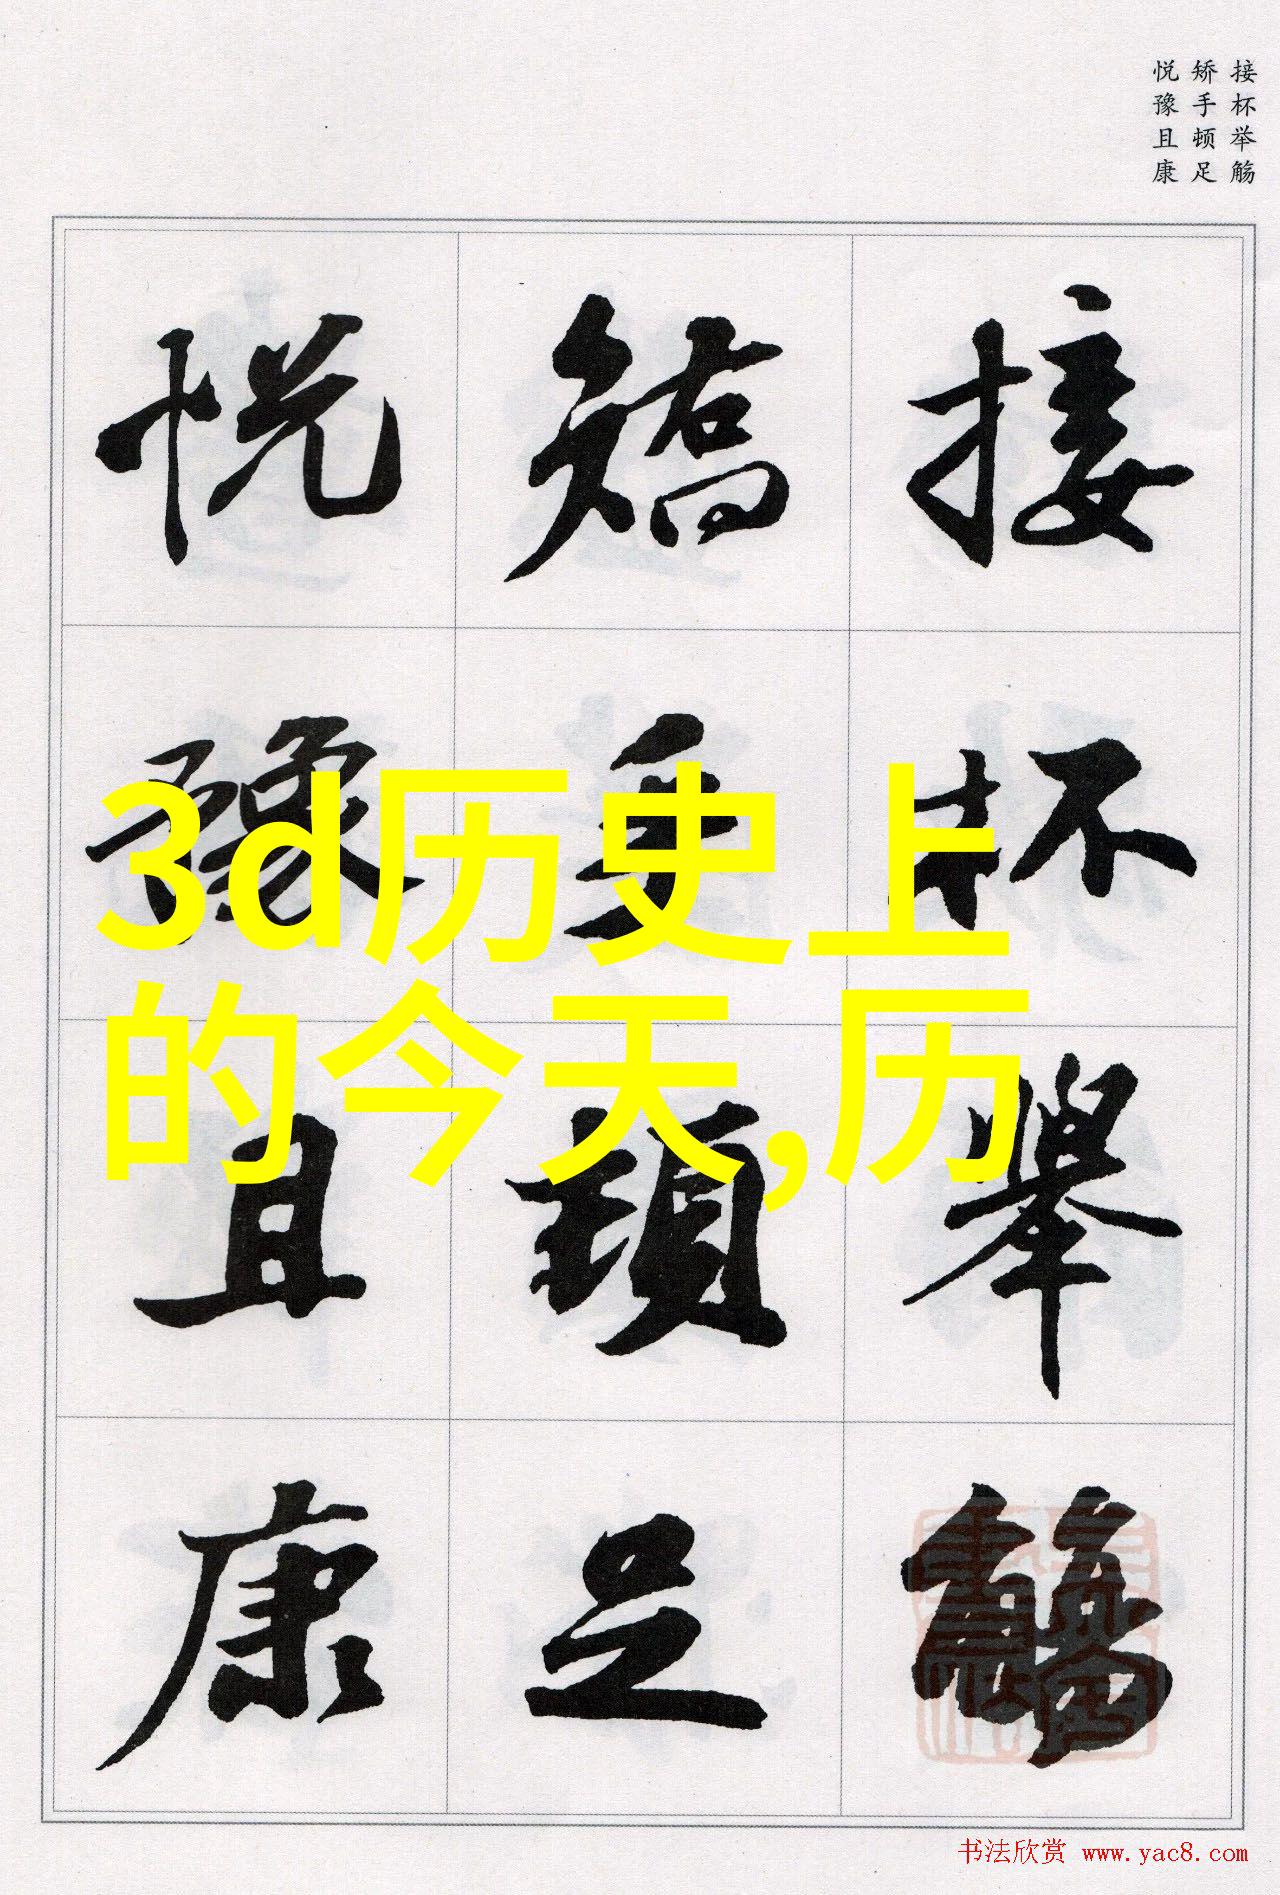 接杯举觞
矫手顿足
悦豫且康
接杯舉觴
矯手頓足
悦豫且康
3d历史上
的今天,历
书法欣赏 www.yac8.com